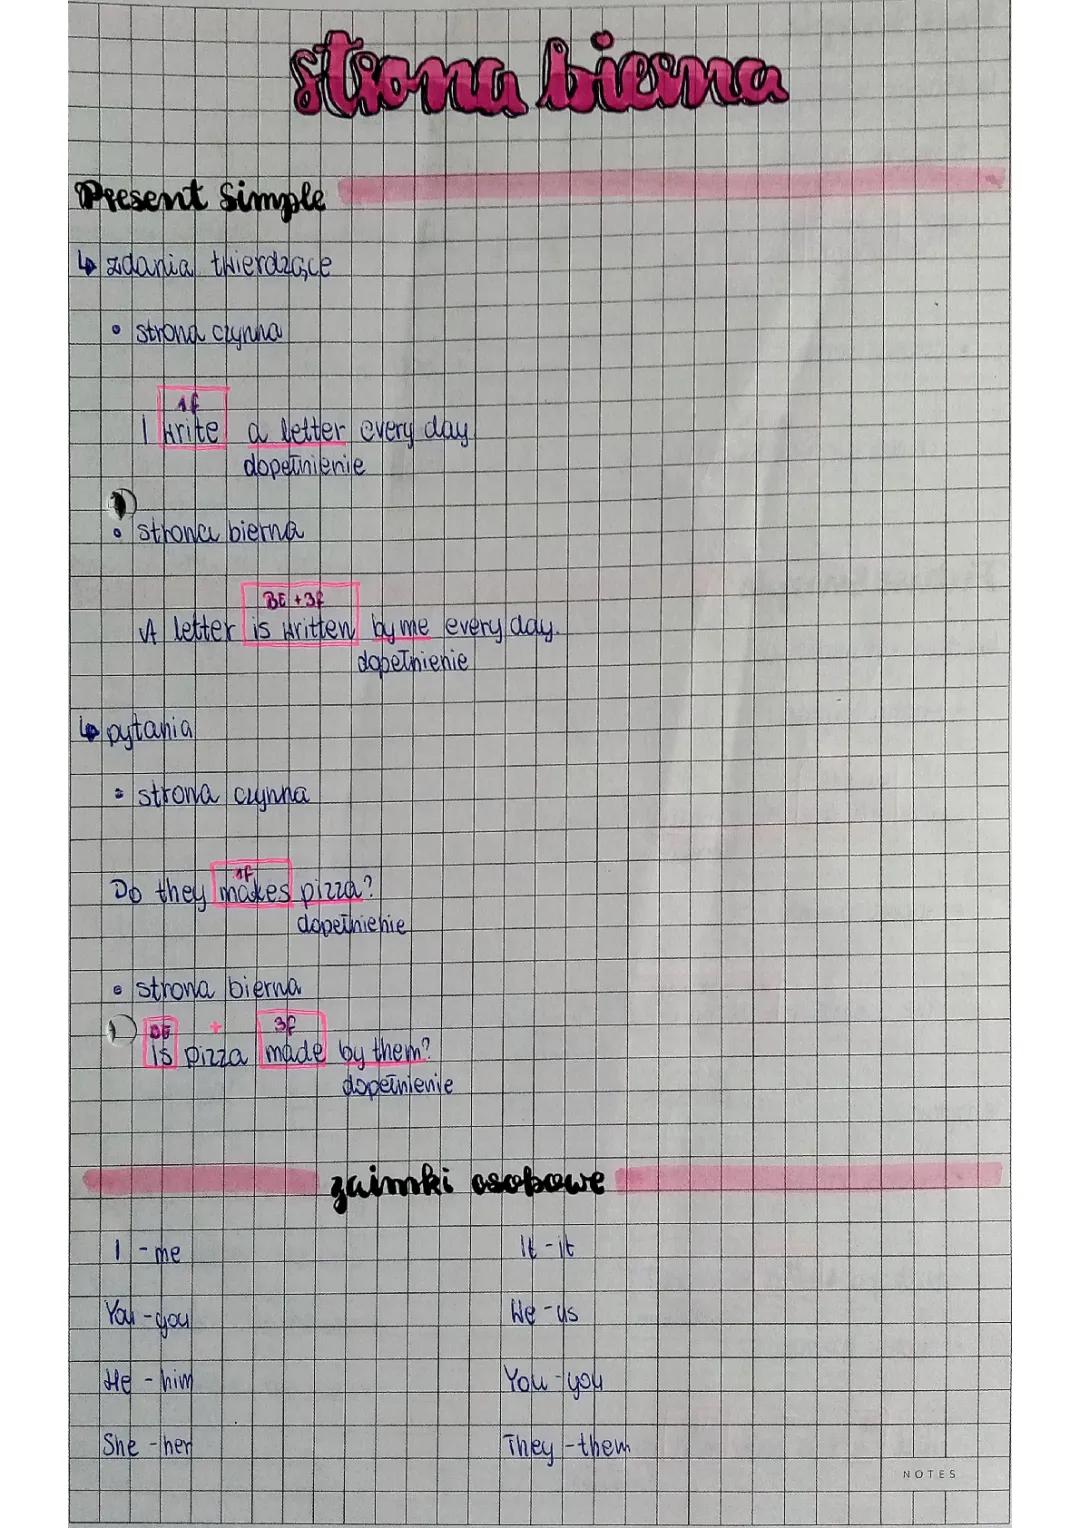 strona bierna
Present Simple
↳ zdania twierdzące
• strona czynna
1f
I write a letter every day
dopełnienie
• strona bierna
BE + 3f
A letter is written by me every day.
dopełnienie
↳ pytania
• strona czynna
1f
Do they makes pizza?
dopełnienie
• strona bierna
BE + 3f
is pizza made by them?
dopełnienie
zaimki osobowe
I - me It - it
You - you We - us
He - him You - you
She - her They - them
NOTES